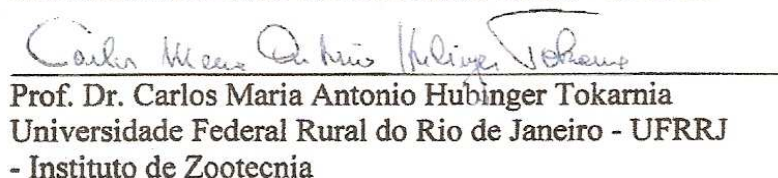 Carlos Maria Antonio Hubinger Tokarnia
Prof. Dr. Carlos Maria Antonio Hubinger Tokarnia
Universidade Federal Rural do Rio de Janeiro - UFRRJ
- Instituto de Zootecnia